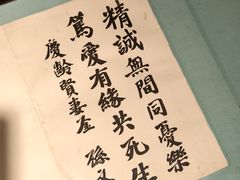 精誠無間同憂樂
篤愛有緣共死生
慶齡賢妻鉴 孫